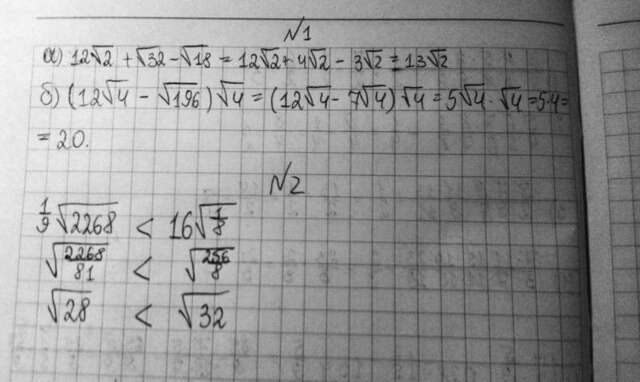 №1
а) 12√2 + √32 - √18 = 12√2 + 4√2 - 3√2 = 13√2
б) (12√4 - √196) √4 = (12√4 - 7√4) √4 = 5√4 · √4 = 5·4 =
= 20.
№2
1/9 √2268 < 16√1/8
√2268/81 < √256/8
√28 < √32